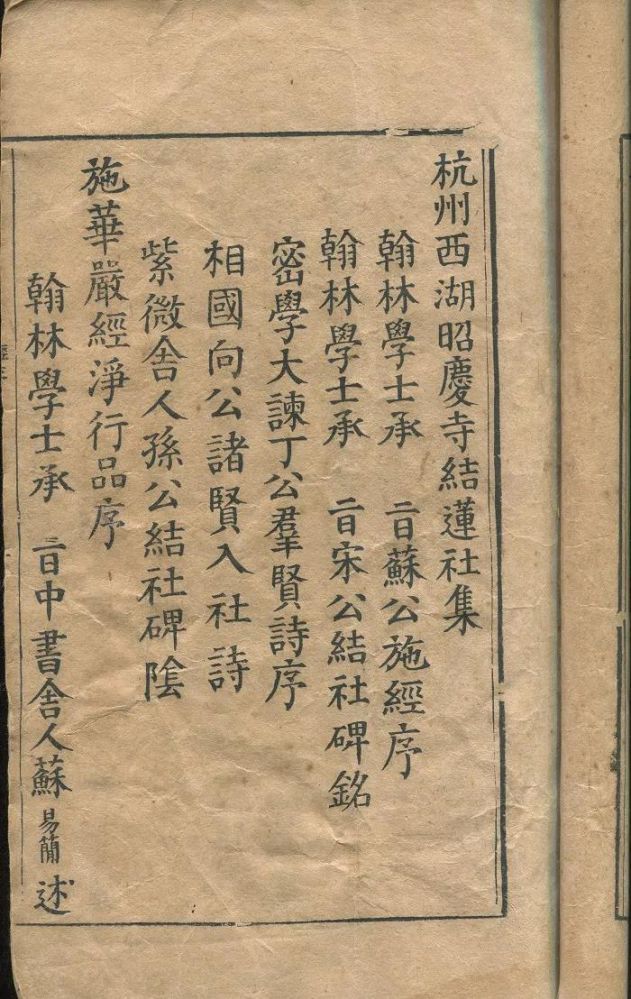 杭州西湖昭慶寺結蓮社集
翰林學士承 㫖蘇公施經序
翰林學士承 㫖宋公結社碑銘
密學大諫丁公羣賢詩序
相國向公諸賢入社詩
紫微舍人孫公結社碑陰
施華嚴經淨行品序
翰林學士承 㫖中書舍人蘇易簡述